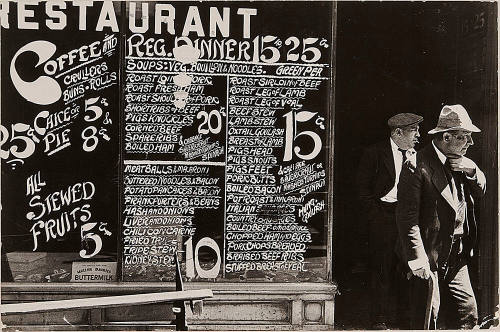 RESTAURANT
COFFEE AND
CRULLERS
BUNS-ROLLS
25¢
CAKE OR 5¢
PIE 8¢
ALL
STEWED
FRUITS
5¢
BUTTERMILK
REG. DINNER 15¢ 25¢
SOUPS: VEG. BOUILLON & NOODLES. GREEN PEA
ROAST
ROAST FRESH HAM
ROAST SHOULDER OF PORK
SHORT RIBS OF BEEF
PIGS KNUCKLES
CORNED BEEF
SPARE RIBS
BOILED HAM
20¢
MEATBALLS & MACARONI
BUTTERED NOODLES & BACON
POTATO PANCAKES & BACON
FRANKFURTERS & BEANS
HASH AND ONIONS
LIVER AND ONIONS
CHILI CON CARNE
FRIED
TRIPE STEW
KIDNEY STEW
10
ROAST SIRLOIN OF BEEF
ROAST LEG OF LAMB
ROAST LEG OF VEAL
BEEF STEW
LAMB STEW
OXTAIL GOULASH
BREAST OF LAMB
PIGS HEAD
PIGS SNOUTS
PIGS FEET
PORK BUTTS
BOILED BACON
POT ROAST & MACARONI
ITALIAN
COUNTRY
BOILED BEEF
CHOPPED HAM AND EGGS
PORK CHOPS BREADED
BRAISED BEEF RIBS
STUFFED BREAST OF VEAL
15¢
HUNG.
GOULASH